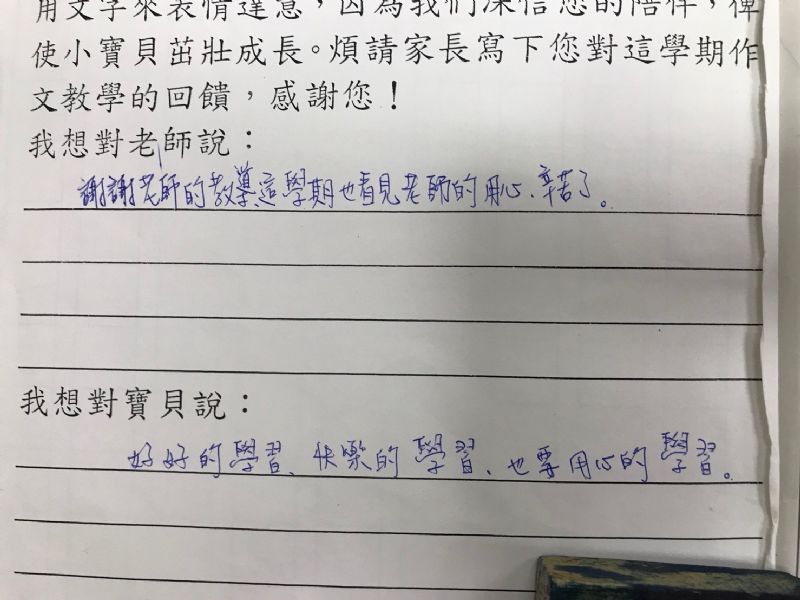 用文字來表情達意，因為我們深信您的陪伴，俾
使小寶貝茁壯成長。煩請家長寫下您對這學期作
文教學的回饋，感謝您！
我想對老師說：
謝謝老師的教導、這學期也看見老師的用心、辛苦了。
我想對寶貝說：
好好的學習、快樂的學習、也要用心的學習。